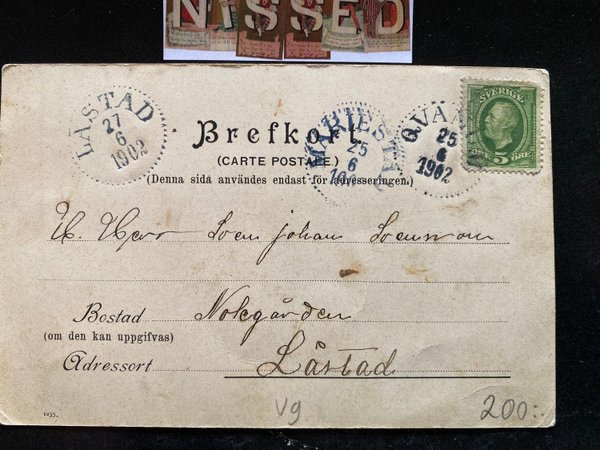 NISSED
LÅSTAD
27
6
1902
Brefkort.
(CARTE POSTALE.)
(Denna sida användes endast för adresseringen.)
MARIESTAD
25
6
25
6
1902
SVERIGE
5 ÖRE
H. Herr Sven Johan Svensson
Bostad Nolegården
(om den kan uppgifvas)
Adressort Låstad
Vg 200:-